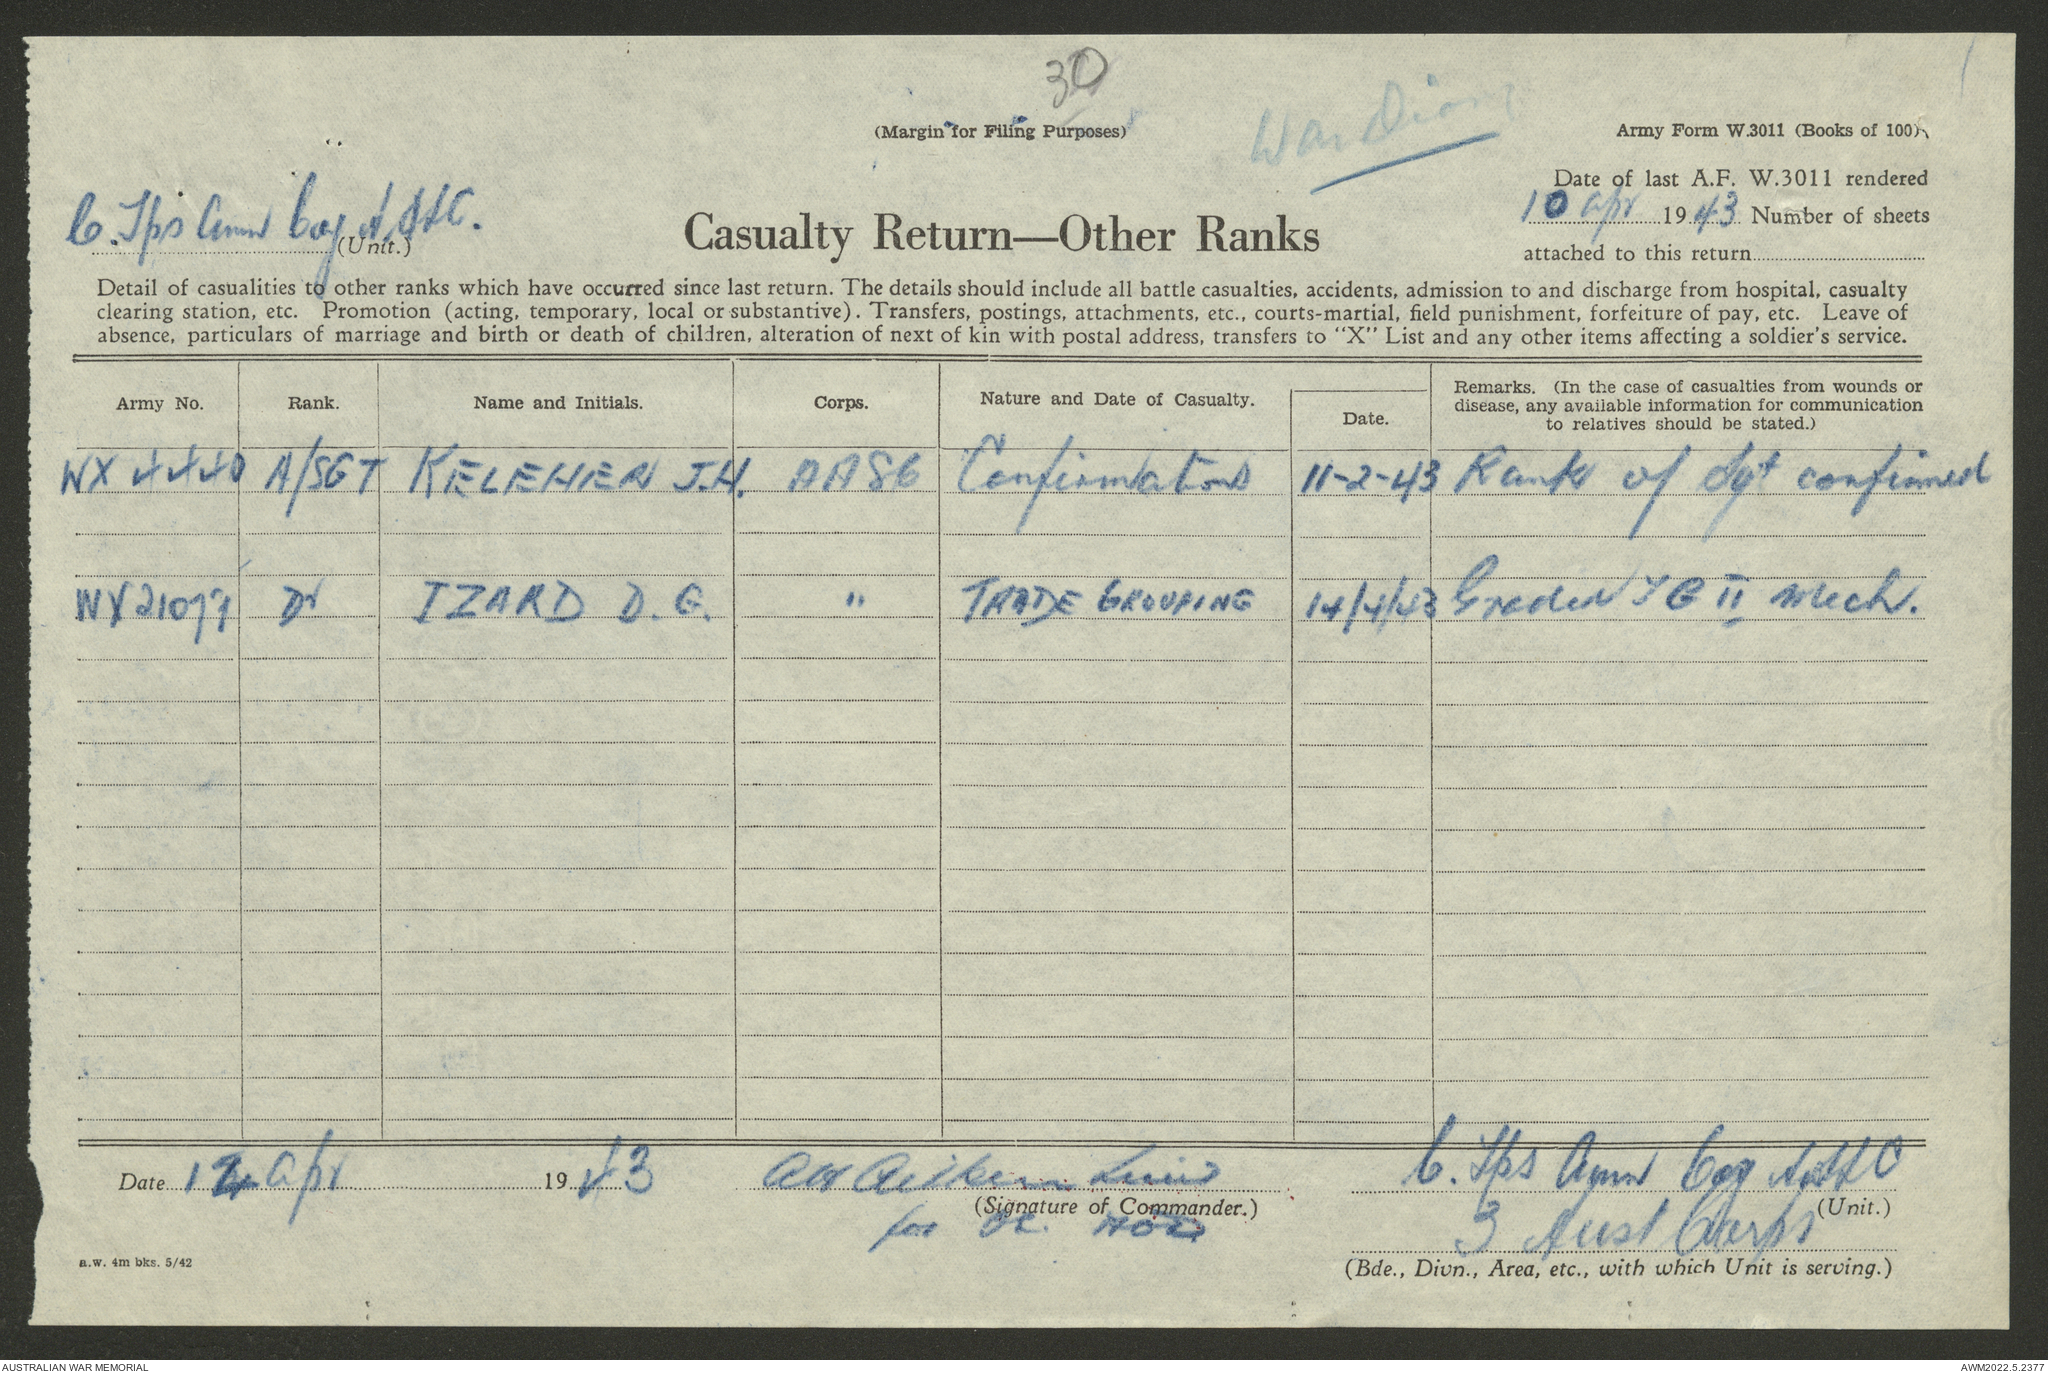 30
(Margin for Filing Purposes)
War Diary
Army Form W.3011 (Books of 100)
Date of last A.F. W.3011 rendered
10 Apr 1943 Number of sheets
attached to this return
C. Tps Amn Coy AASC.
(Unit.)
Casualty Return—Other Ranks
Detail of casualities to other ranks which have occurred since last return. The details should include all battle casualties, accidents, admission to and discharge from hospital, casualty
clearing station, etc. Promotion (acting, temporary, local or substantive). Transfers, postings, attachments, etc., courts-martial, field punishment, forfeiture of pay, etc. Leave of
absence, particulars of marriage and birth or death of children, alteration of next of kin with postal address, transfers to "X" List and any other items affecting a soldier's service.
Army No. Rank. Name and Initials. Corps. Nature and Date of Casualty. Date. Remarks. (In the case of casualties from wounds or
disease, any available information for communication
to relatives should be stated.)
WX 4440 A/SGT KELEHER J.H. AASC Confirmation 11-2-43 Rank of Sgt confirmed
WX21077 Dr IZARD D. G. " TRADE GROUPING 14/4/43 Graded TG II Mech.
Date 14 Apr 1943
(Signature of Commander.)
for OC.
C. Tps Amn Coy AASC
(Unit.)
3 Aust Corps
(Bde., Divn., Area, etc., with which Unit is serving.)
a.w. 4m bks. 5/42
AUSTRALIAN WAR MEMORIAL
AWM2022.5.2377